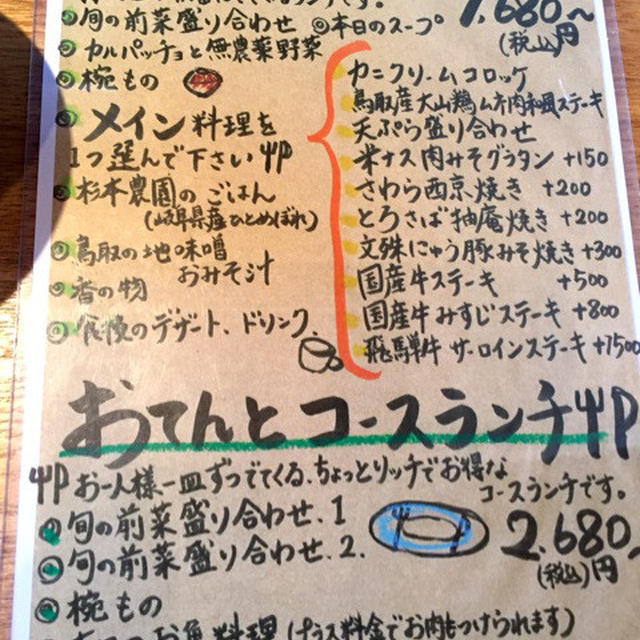 旬の前菜盛り合わせ ◎本日のスープ
カルパッチョと無農薬野菜
椀もの
メイン料理を
1つ選んで下さい
杉本農園のごはん
(岐阜県産ひとめぼれ)
鳥取の地味噌
おみそ汁
香の物
食後のデザート、ドリンク
1,680~
(税込)円
カニクリームコロッケ
鳥取産大山鶏ムネ肉和風ステーキ
天ぷら盛り合わせ
米ナス肉みそグラタン +150
さわら西京焼き +200
とろさば柚庵焼き +200
文殊にゅう豚みそ焼き +300
国産牛ステーキ +500
国産牛みすじステーキ +800
飛騨牛サーロインステーキ +1500
おてんとコースランチ
お一人様一皿ずつでてくる、ちょっとリッチでお得な
コースランチです。
旬の前菜盛り合わせ、1
旬の前菜盛り合わせ、2.
椀もの
2,680
(税込)円
お魚料理(プラス料金でお肉もつけられます)